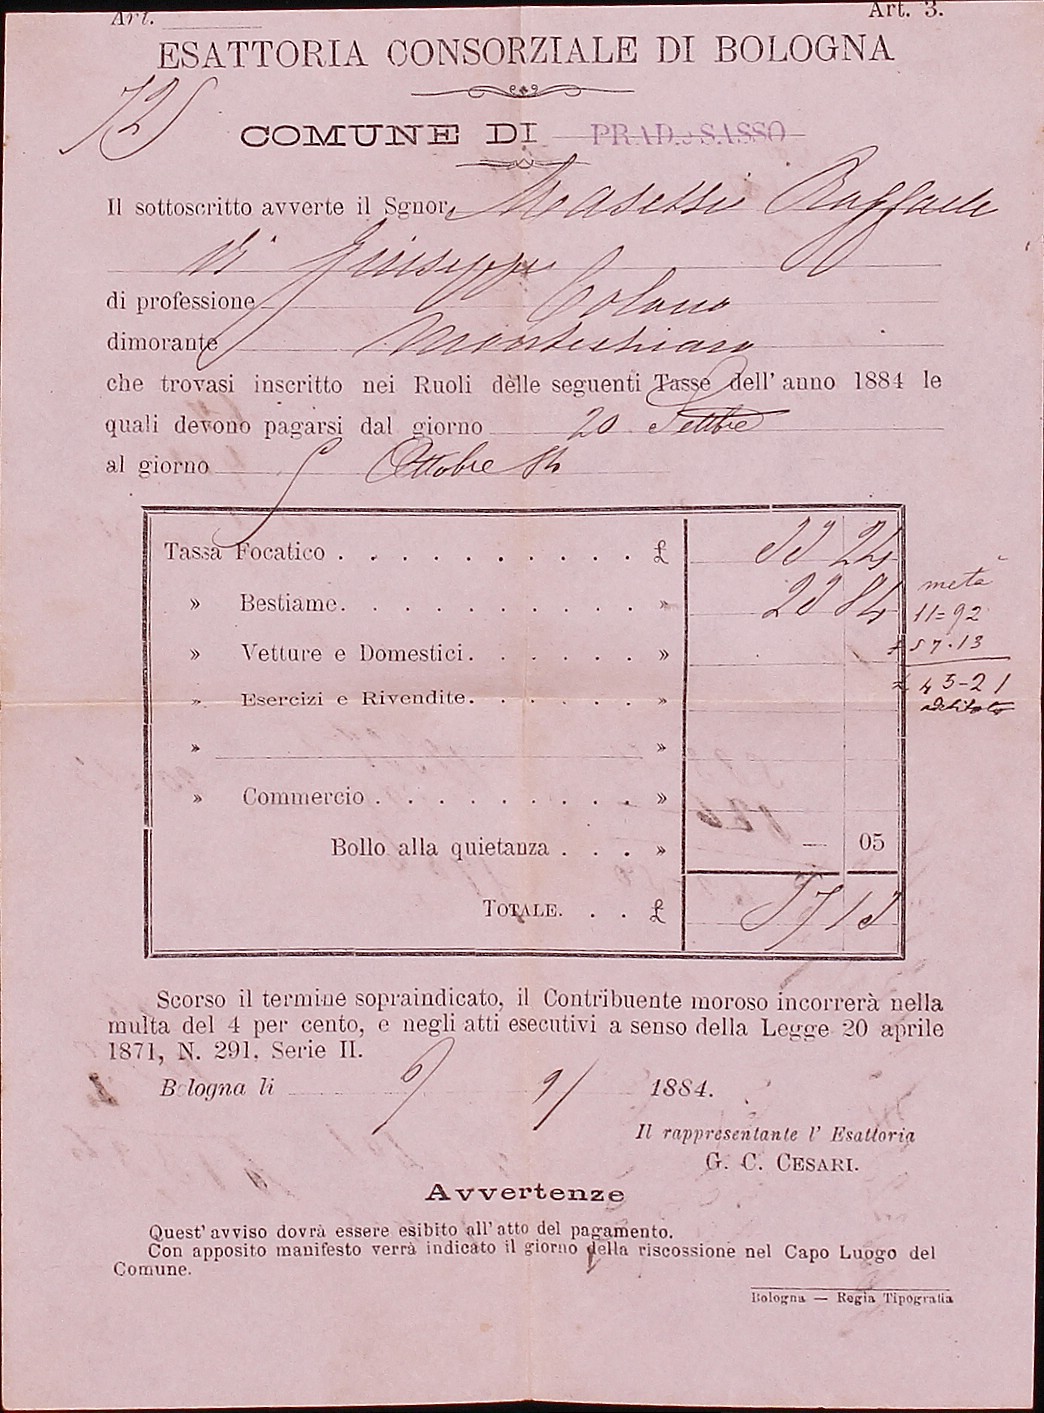 Art.
Art. 3.
ESATTORIA CONSORZIALE DI BOLOGNA
725
COMUNE DI PRAD. SASSO
Il sottoscritto avverte il Sgnor Masetti Raffaele
di Giuseppe
di professione Colono
dimorante Montechiaro
che trovasi inscritto nei Ruoli delle seguenti Tasse dell' anno 1884 le
quali devono pagarsi dal giorno 20 Settbre
al giorno 5 Ottobre 84
Tassa Focatico . . . . . . . . . . £ 33 24
» Bestiame. . . . . . . . . . » 23 84
metà
11=92
» Vetture e Domestici. . . . . . »
57.13
» Esercizi e Rivendite. . . . . . »
45-21
»  »
» Commercio . . . . . . . . . »
Bollo alla quietanza . . . » — 05
TOTALE. . . £ 57 13
Scorso il termine sopraindicato, il Contribuente moroso incorrerà nella
multa del 4 per cento, e negli atti esecutivi a senso della Legge 20 aprile
1871, N. 291. Serie II.
Bologna li 6/ 9/ 1884.
Il rappresentante l' Esattoria
G. C. CESARI.
Avvertenze
Quest' avviso dovrà essere esibito all' atto del pagamento.
Con apposito manifesto verrà indicato il giorno della riscossione nel Capo Luogo del
Comune.
Bologna — Regia Tipografia